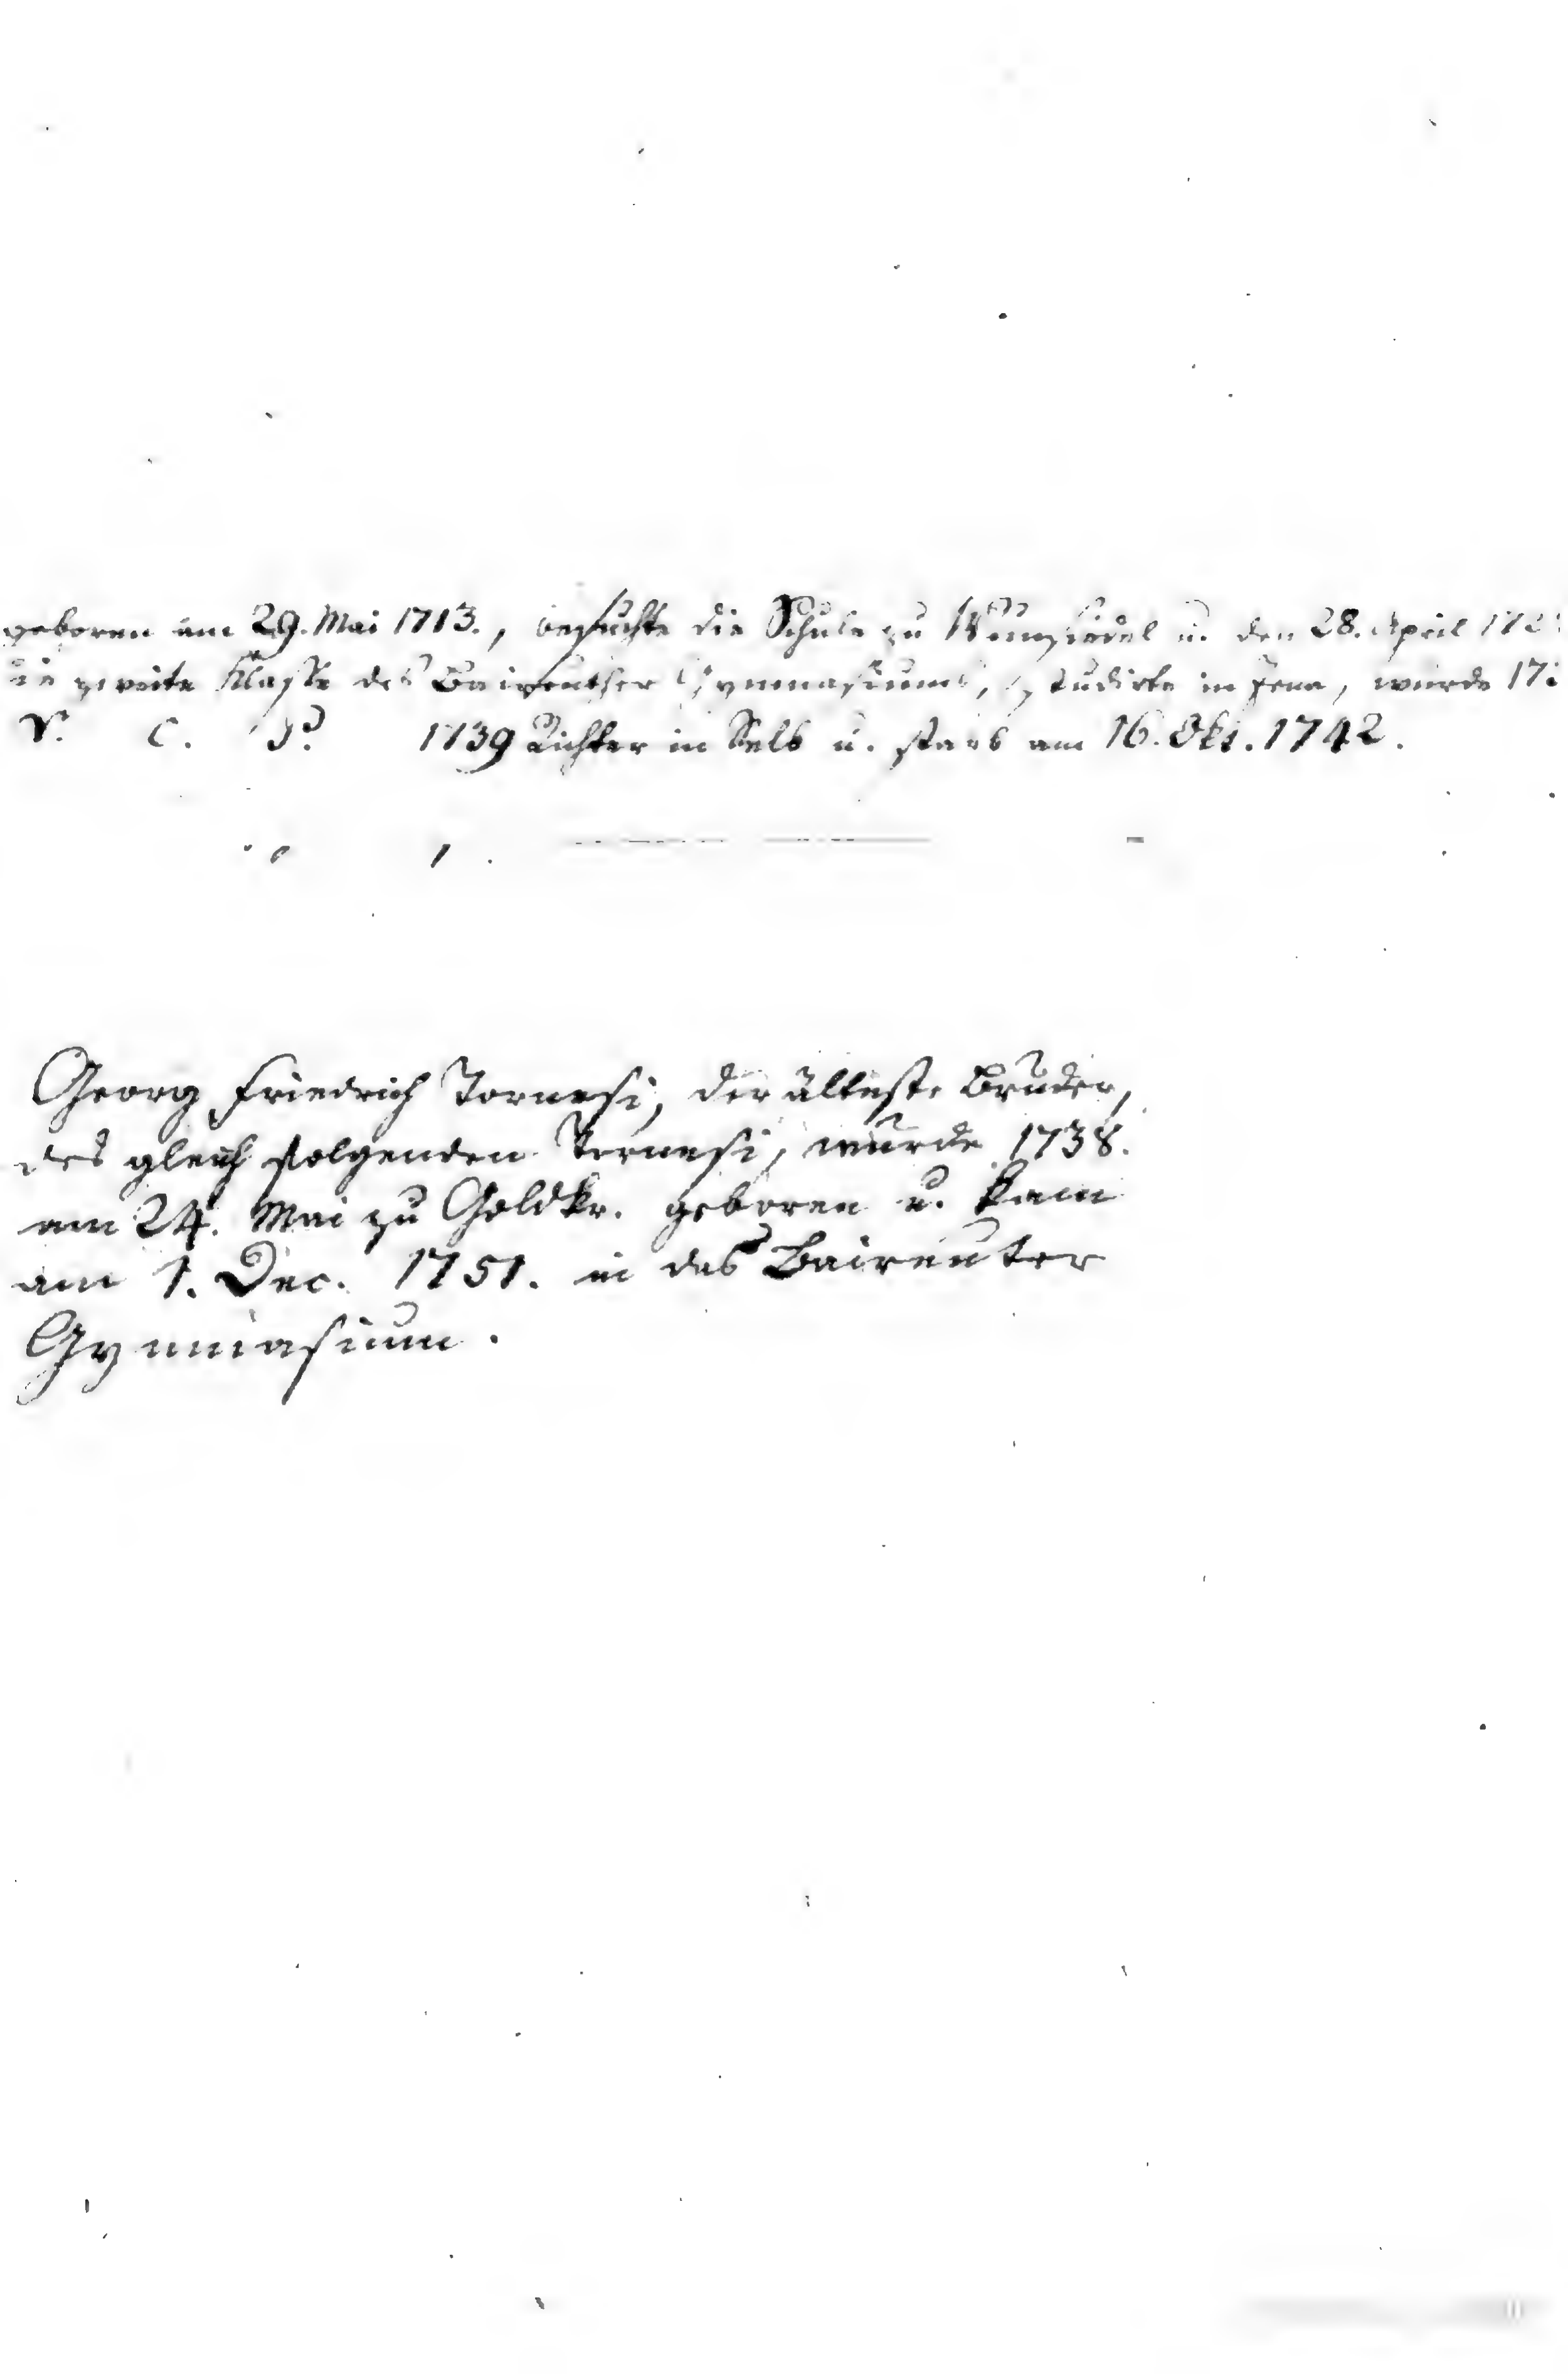 geboren am 29. Mai 1713., besuchte die Schule zu Wunsiedel u. den 28. April
die zweite Klasse des Baireuther Gymnasiums, studirte in Jena, wurde
1739 Richter in Selb u. starb am 16. Okt. 1742.
Georg Friedrich Tornesi, der älteste Bruder,
des gleich folgenden Tornesi, wurde 1738.
am 24. Mai zu Goldkr. geboren u. kam
am 1. Dec. 1751. in das Baireuter
Gymnasium.